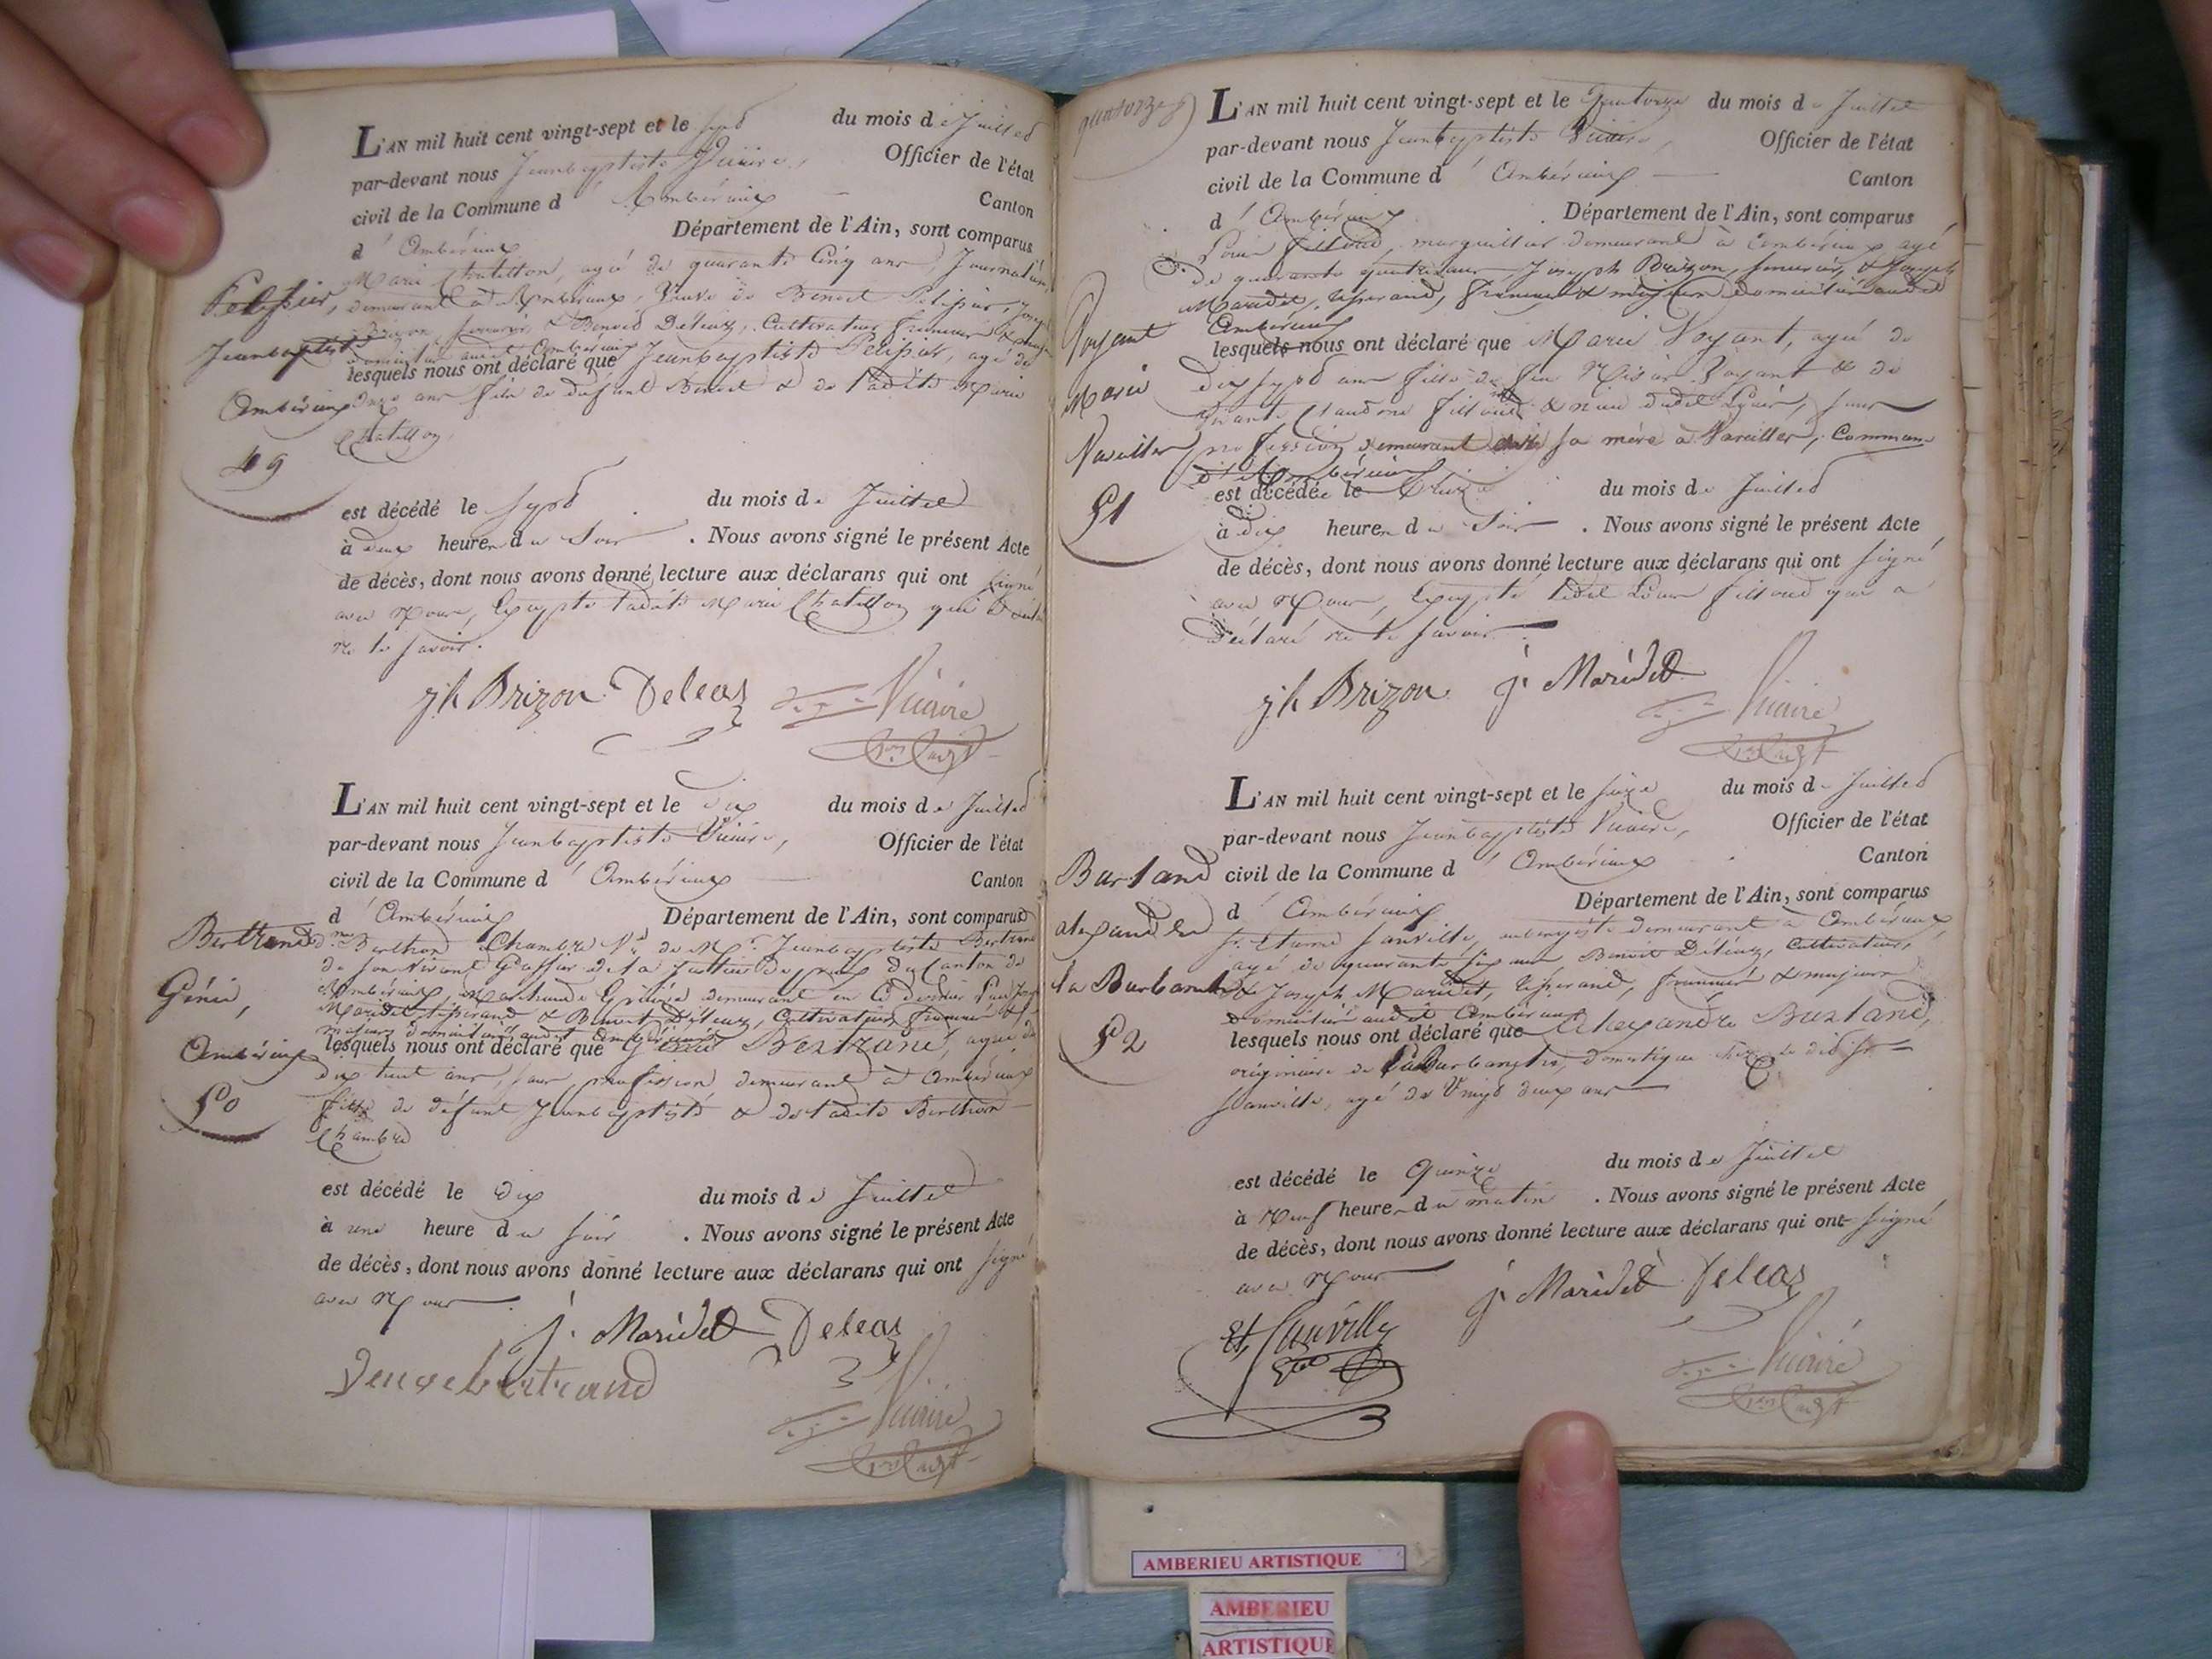 L'AN mil huit cent vingt-sept et le sept du mois de Juillet
par-devant nous Jeanbaptiste Vicaire, Officier de l'état
civil de la Commune d' Ambérieux Canton
d' Ambérieux Département de l'Ain, sont comparus
Marie Chatillon, agé de quarante Cinq ans, Journalière,
demeurant à Ambérieux, Veuve de Benoit Pelissier, Joseph
Brizon, & Benoit Déléaz, Cultivateur
domicilié audit Ambérieux
Pelissier,
Jeanbaptiste
Ambérieux
49
lesquels nous ont déclaré que Jeanbaptiste Pelissier, agé de
ans fils de défunt Benoit & de ladite Marie
Chatillon
est décédé le sept du mois de Juillet
à deux heures du Soir. Nous avons signé le présent Acte
de décès, dont nous avons donné lecture aux déclarans qui ont signé
avec Nous, Excepté ladite Marie Chatillon qui a
ne le savoir.
jh Brizon Deleaz Vicaire
L'AN mil huit cent vingt-sept et le Dix du mois de Juillet
par-devant nous Jeanbaptiste Vicaire, Officier de l'état
civil de la Commune d' Ambérieux Canton
d' Ambérieux Département de l'Ain, sont comparus
Berthon Chambre Ve de Mr Jeanbaptiste Bertrand
de son Vivant Greffier de la Justice de paix du Canton de
Ambérieux, demeurant en ce dernier lieu, Joseph
Maridet, Tisserand & Benoit Déléaz, Cultivateur,
majeurs domiciliés audit Ambérieux
Bertrand
Génie,
Ambérieux
50
lesquels nous ont déclaré que Génie Bertrand, agée de
dix huit ans, sans profession demeurant à Ambérieux
fille de défunt Jeanbaptiste & de ladite Berthon
Chambre
est décédé le Dix du mois de Juillet
à une heure du soir. Nous avons signé le présent Acte
de décès, dont nous avons donné lecture aux déclarans qui ont signé
avec Nous.
J. Maridet Deleaz
Veuve bertrand
Vicaire
quatorze
L'AN mil huit cent vingt-sept et le Quatorze du mois de Juillet
par-devant nous Jeanbaptiste Vicaire, Officier de l'état
civil de la Commune d' Ambérieux Canton
d' Ambérieux. Département de l'Ain, sont comparus
Filloud, marguillier demeurant à Ambérieux agé
de quarante quatre ans Joseph Brizon, & Joseph
Maridet, tisserand, & majeurs domiciliés audit
Ambérieux
Voyant
Marie
Vareilles
51
lesquels nous ont déclaré que Marie Voyant, agée de
dix sept ans fille de feu Voyant & de
vivante Claudine Filloud & nièce dudit, sans
profession demeurant chez sa mère à Vareilles, Commune
d'Ambérieux
est décédée le Treize du mois de Juillet
à dix heures du Soir. Nous avons signé le présent Acte
de décès, dont nous avons donné lecture aux déclarans qui ont signé
avec Nous, Excepté ledit Filloud qui a
déclaré ne le savoir.
jh Brizon j. Maridet Vicaire
L'AN mil huit cent vingt-sept et le seize du mois de Juillet
par-devant nous Jeanbaptiste Vicaire, Officier de l'état
civil de la Commune d' Ambérieux Canton
d' Ambérieux Département de l'Ain, sont comparus
sr. Etienne Sauville, aubergiste demeurant à Ambérieux,
agé de quarante six ans Benoit Déléaz, Cultivateur,
& Joseph Maridet, tisserand, & majeurs
domiciliés audit Ambérieux
Burland
alexandre
la Burbanche
52
lesquels nous ont déclaré que Alexandre Burland,
originaire de la Burbanche, domestique chez le dit sr
Sauville, agé de Vingt deux ans
est décédé le Quinze du mois de Juillet
à Neuf heures du matin. Nous avons signé le présent Acte
de décès, dont nous avons donné lecture aux déclarans qui ont signé
avec Nous
j. Maridet Deleaz
Et. Sauville
Vicaire
AMBERIEU ARTISTIQUE
AMBERIEU
ARTISTIQUE